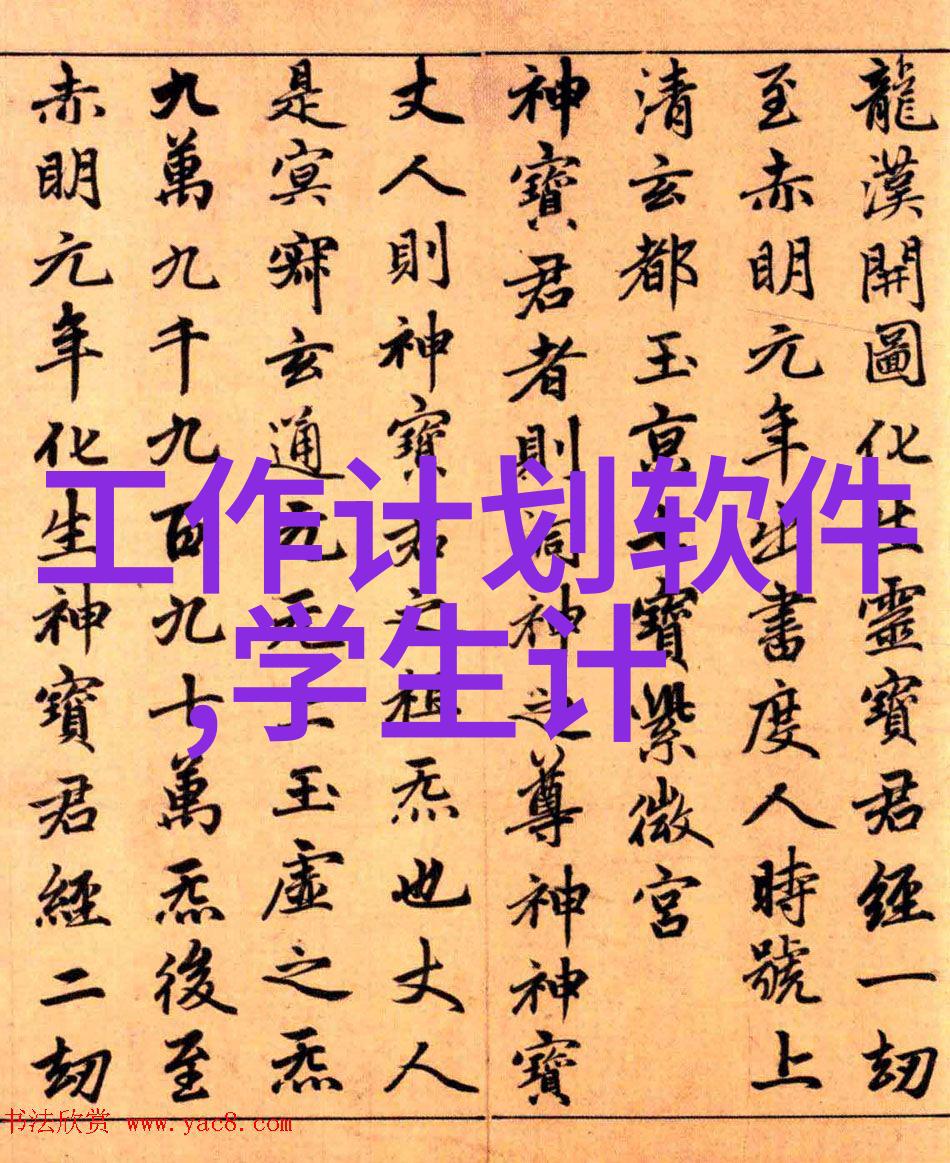 龍漢開圖化靈寶君經一劫
至赤明元年出書度人時號上
清玄都玉京七寶紫微宮
神寶君者則洞神之尊神神寶
丈人則神寶君之祖炁也丈人
是冥寂玄通元无上玉虛之炁
九萬九千九百九十萬炁後至
赤明元年化生神寶君經二劫
工作计划软件
,学生计
书法欣赏 www.yac8.com